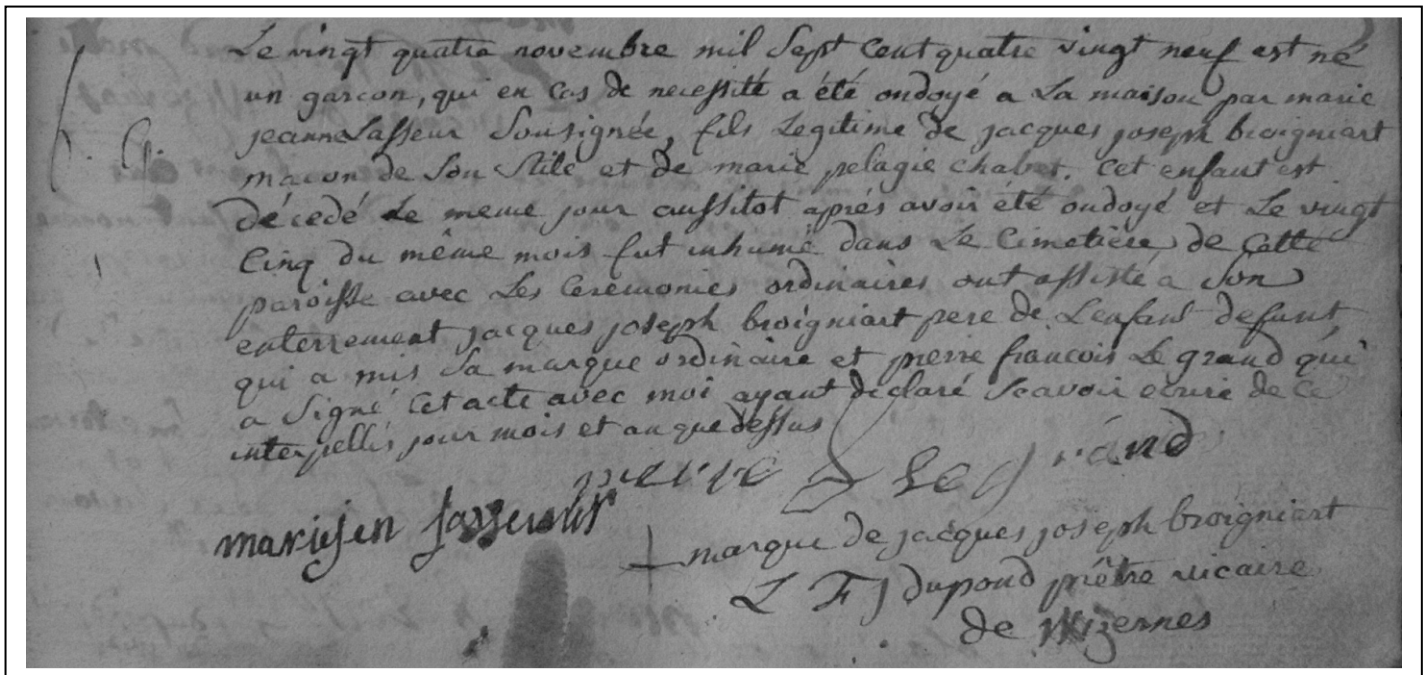 Le vingt quatre novembre mil Sept Cent quatre vingt neuf est né
un garcon, qui en cas de necessité a été ondoyé a La maison par marie
jeanne Lasseur Sousignée, fils Legitime de jacques joseph broigniart
macon de Son Stile et de marie pelagie chabet. Cet enfant est
décedé Le meme jour aussitot aprés avoir été ondoyé et Le vingt
Cinq du même mois fut inhumé dans Le Cimetière de Cette
paroisse avec Les Ceremonies ordinaires ont assisté a Son
enterrement jacques joseph broigniart pere de Lenfant defunt,
qui a mis Sa marque ordinaire et pierre francois Le grand qui
a Signé Cet acte avec moi ayant declaré Scavoir ecrire de Ce
interpellés jour mois et an que dessus
pierre f Le grand
mariejen
marque de jacques joseph broigniart
L F J dupond prêtre vicaire
de Wizernes